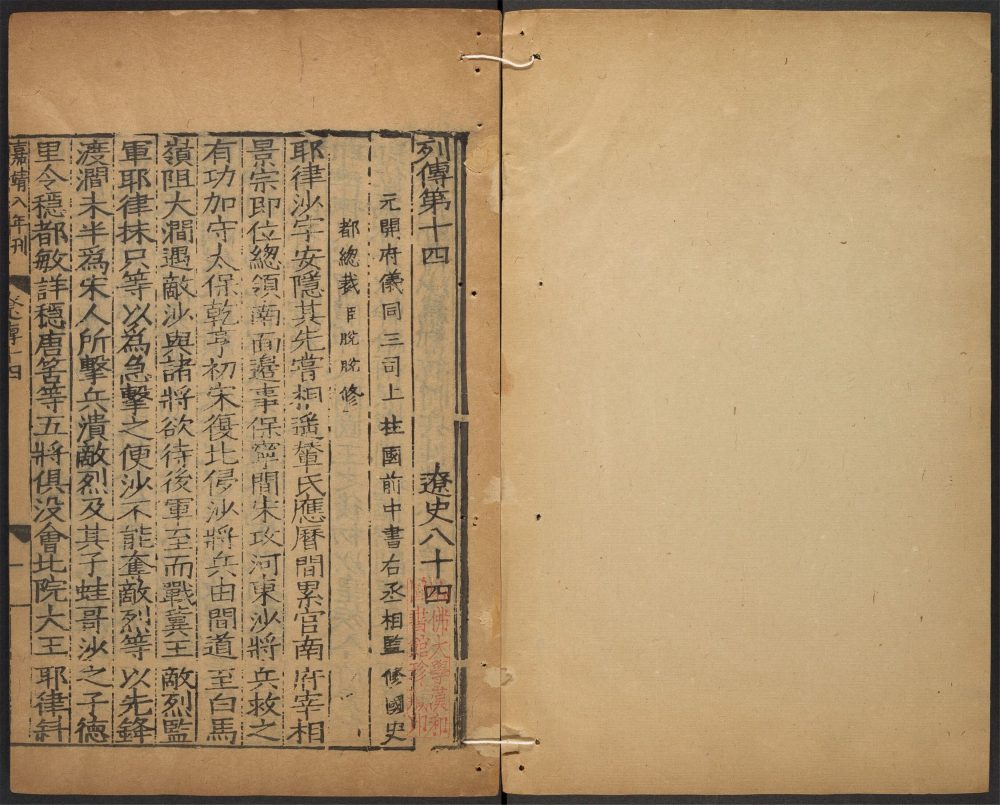 列傳第十四 遼史八十四
元開府儀同三司上柱國前中書右丞相監修國史
都總裁臣脫脫修
耶律沙字安隱其先嘗相遙輦氏應曆間累官南府宰相
景宗即位總領南面邊事保寧間宋攻河東沙將兵救之
有功加守太保乾亨初宋復北侵沙將兵由間道至白馬
嶺阻大澗遇敵沙與諸將欲待後軍至而戰冀王敵烈監
軍耶律抹只等以為急擊之便沙不能奪敵烈等以先鋒
渡澗未半為宋人所擊兵潰敵烈及其子蛙哥沙之子德
里令穩都敏詳穩唐筈等五將俱没會北院大王耶律斜
嘉靖八年刊
傳十四
一
佛大學漢和
圖書館珍藏印